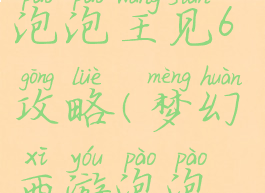 pào pào wáng jiàn
泡泡王见6
gōng lüè mèng huàn
攻略(梦幻
xī yóu pào pào
西游泡泡